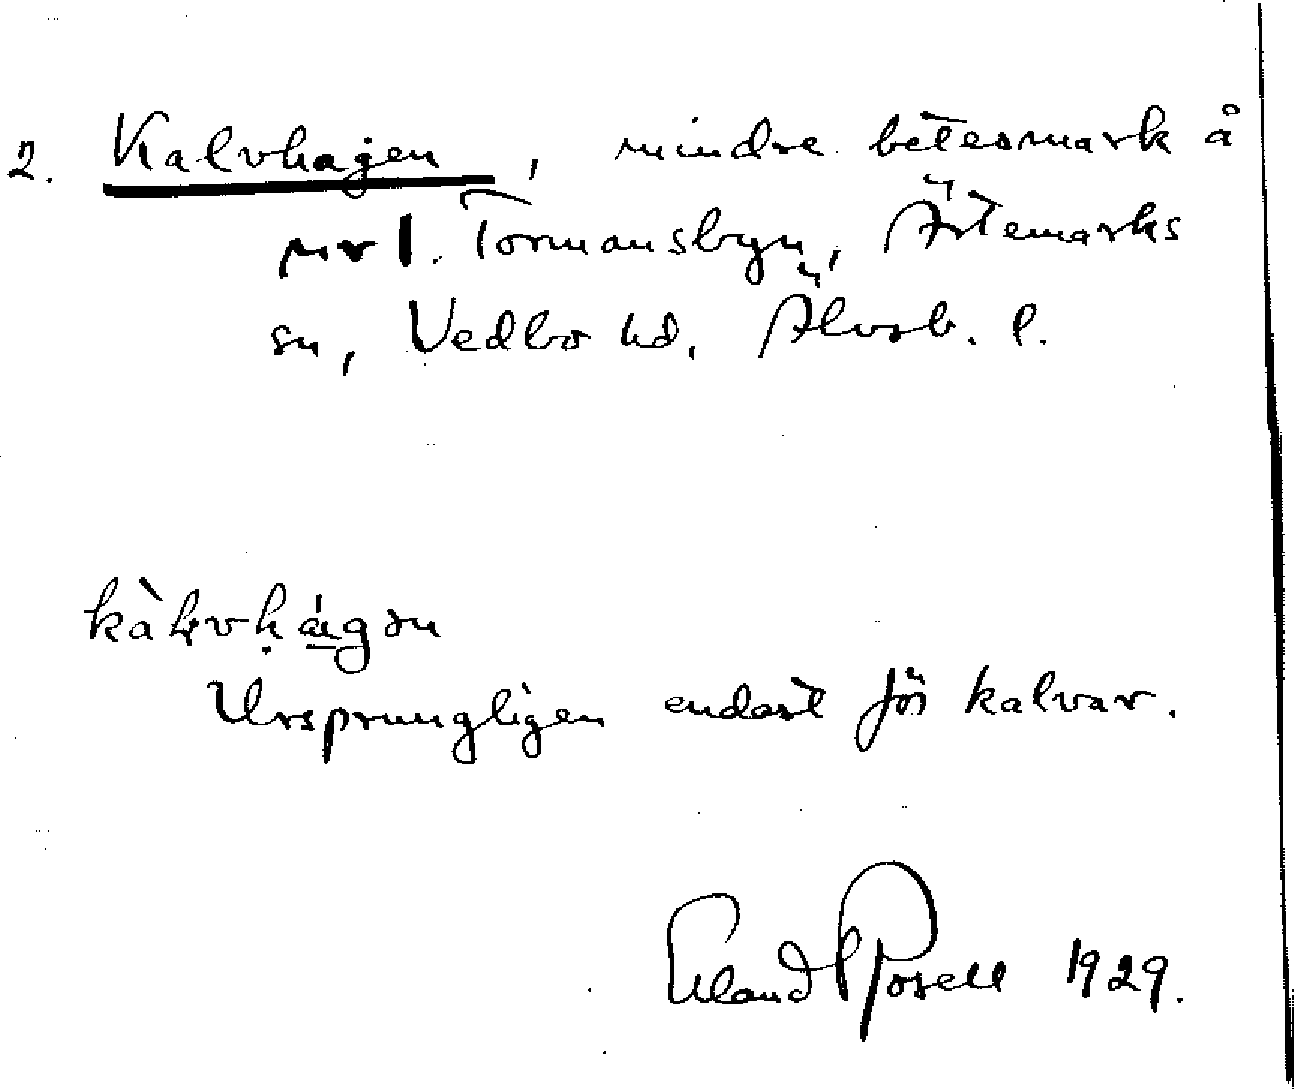 2. Kalvhagen, mindre betesmark å
nr 1. Tormansbyn, Ärtemarks
sn, Vedbo hd, Älvsb. l.
Ursprungligen endast för kalvar.
Erland Rosell 1929.